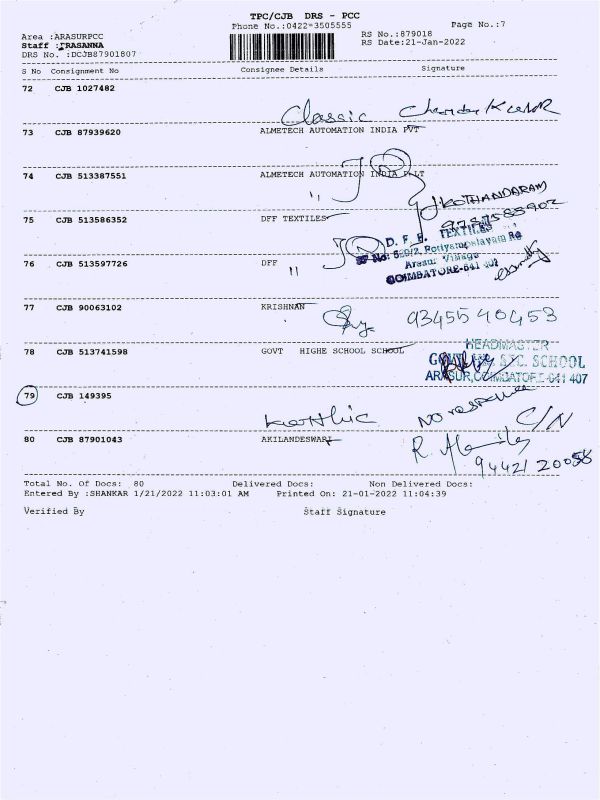 TPC/CJB DRS - PCC
Phone No.:0422-3505555
Page No.:7
Area :ARASURPCC
RS No.:879018
Staff :PRASANNA
RS Date:21-Jan-2022
DRS No. :DCJB87901807
S No Consignment No Consignee Details Signature
72 CJB 1027482
Classic
73 CJB 87939620 ALMETECH AUTOMATION INDIA PVT
74 CJB 513387551 ALMETECH AUTOMATION INDIA P LT
KOTHANDARAM
75 CJB 513586352 DFF TEXTILES
D. F. F. TEXTILES
Arasur Village
COIMBATORE-641 407
76 CJB 513597726 DFF
77 CJB 90063102 KRISHNAN
9345540453
78 CJB 513741598 GOVT HIGHE SCHOOL SCHOOL
HEADMASTER
SEC. SCHOOL
ARASUR, COIMBATORE-641 407
79 CJB 149395
Karthic No response C/N
80 CJB 87901043 AKILANDESWARI
Total No. Of Docs: 80 Delivered Docs: Non Delivered Docs:
Entered By :SHANKAR 1/21/2022 11:03:01 AM Printed On: 21-01-2022 11:04:39
Verified By Staff Signature